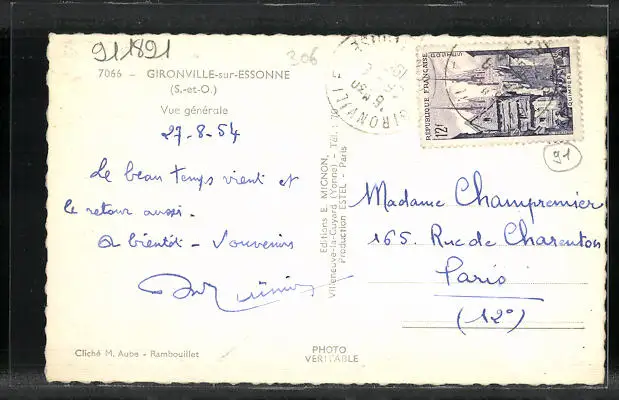 91891
306
7066 - GIRONVILLE-sur-ESSONNE
(S.-et-O.)
Vue générale
27-8-54
Le beau temps vient et
le retour aussi.
A bientôt - Souvenirs
Cliché M. Aube - Rambouillet
Editions E. MIGNON,
Villeneuve-la-Guyard (Yonne) - Tél. : 70
Production ESTEL - Paris
PHOTO
VERITABLE
GIRONVILLE
REPUBLIQUE FRANÇAISE
12F
QUIMPER
91
Madame Champremier
165. Rue de Charenton
Paris
(12°)